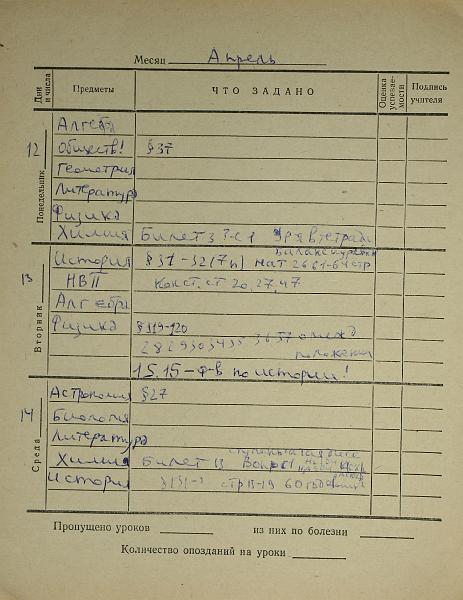 Месяц Апрель
Дни и числа Предметы ЧТО ЗАДАНО Оценка успевае-мости Подпись учителя
Понедельник
12
Алгебра
Обществ! §37
Геометрия
Литература
Физика
Химия Билет 3
Вторник
13
История §31-32
НВП Конст. ст 20, 27, 47
Алгебра
Физика §119-120
15.15 - ф-в по истории!
Среда
14
Астрономия §27
Биология
Литература
Химия Билет 13 Вопрос 1
История стр 13-19
Пропущено уроков из них по болезни
Количество опозданий на уроки